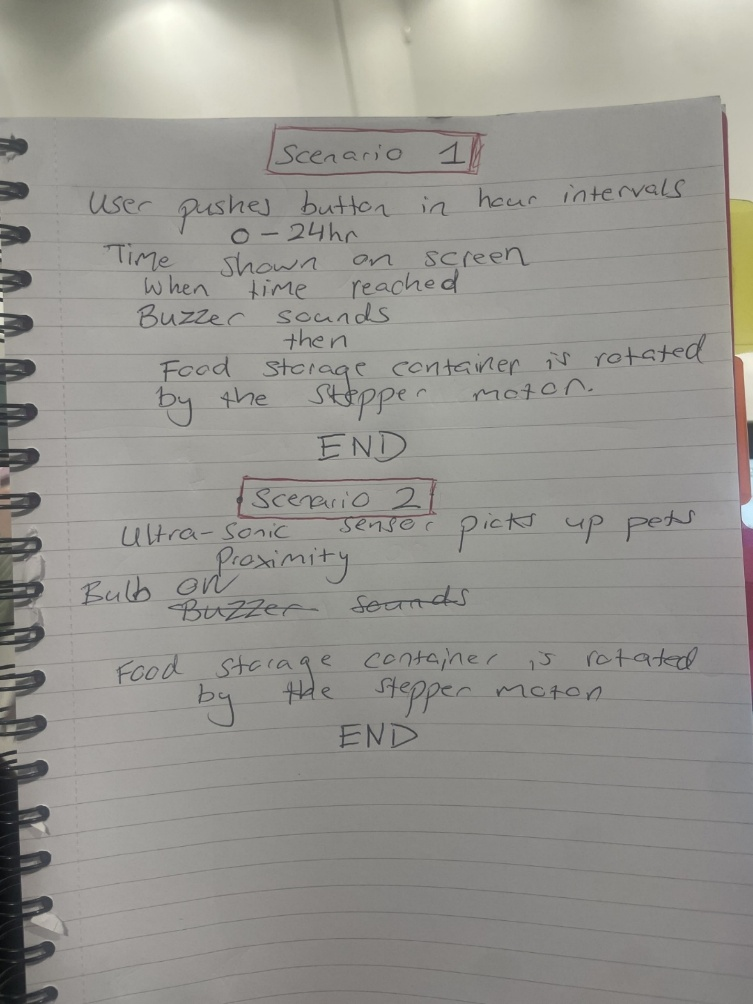 Scenario 1
User pushes button in hour intervals
0 - 24hr
Time shown on screen
When time reached
Buzzer sounds
then
Food storage container is rotated
by the stepper motor.
END
Scenario 2
Ultra-sonic sensor picks up pets
Proximity
Bulb on
Buzzer sounds
Food storage container is rotated
by the stepper motor
END